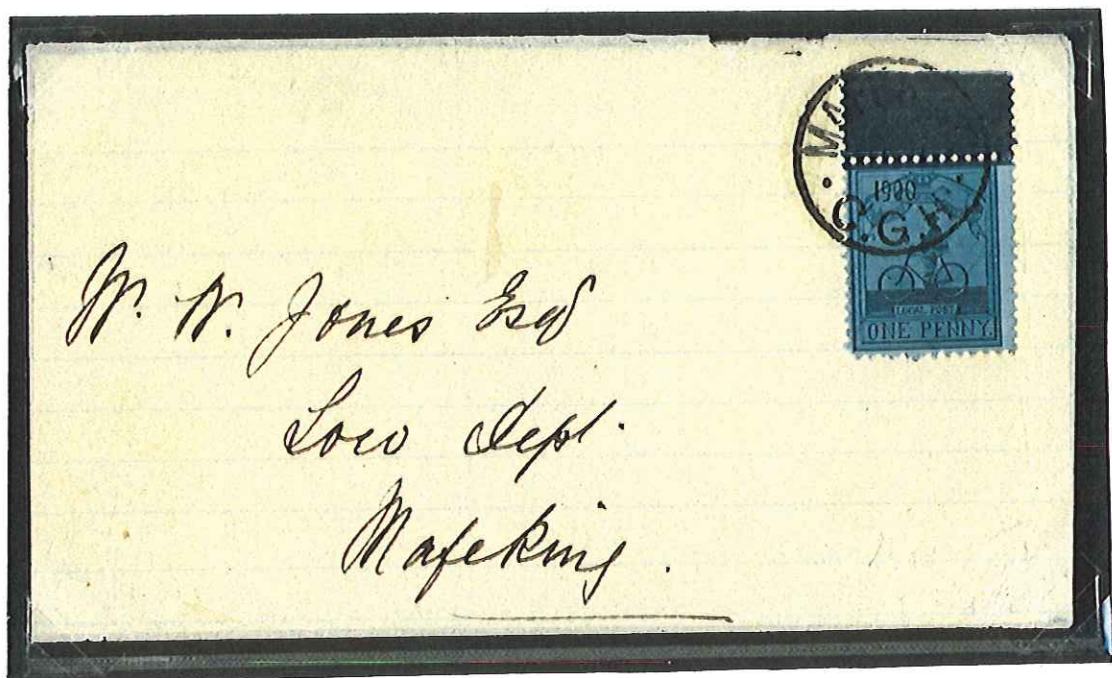 1900
C.G.H.
LOCAL POST
ONE PENNY.
W. W. Jones Esq
Loco Dept.
Mafeking.